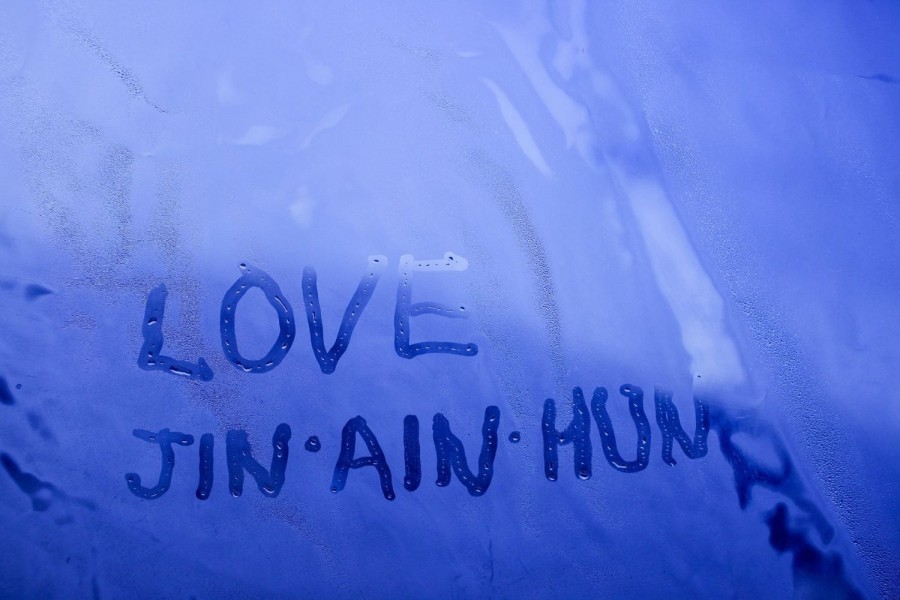 LOVE
JIN·AIN·HUN